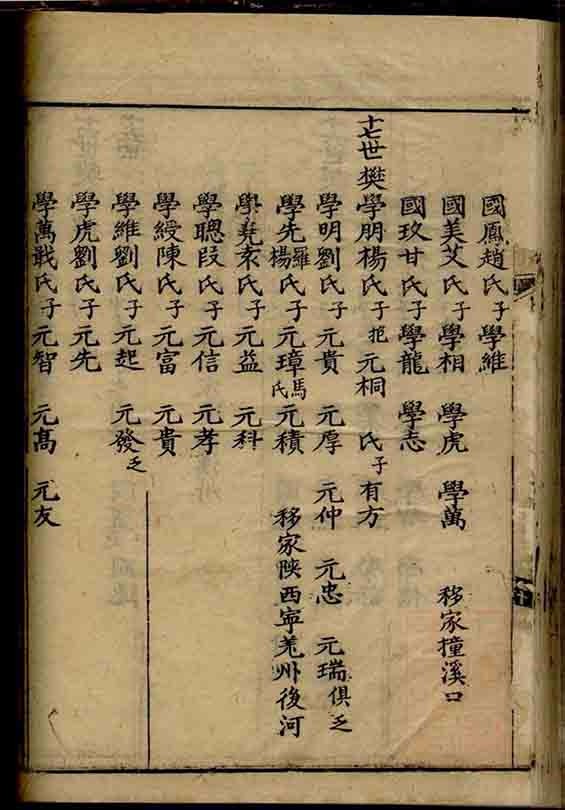 國鳳趙氏子 學維
國美艾氏子 學相 學虎 學萬 移家撞溪口
國玫甘氏子 學龍 學志
十七世樊學朋楊氏子 元桐 氏子有方
學明劉氏子 元貴 元厚 元仲 元忠 元瑞俱乏
學先羅楊氏子 元璋馬氏 元積 移家陝西寧羌州後河
學堯袁氏子 元益 元科
學聰段氏子 元信 元孝
學綬陳氏子 元富 元貴
學維劉氏子 元起 元發乏
學虎劉氏子 元先
學萬戢氏子 元智 元高 元友